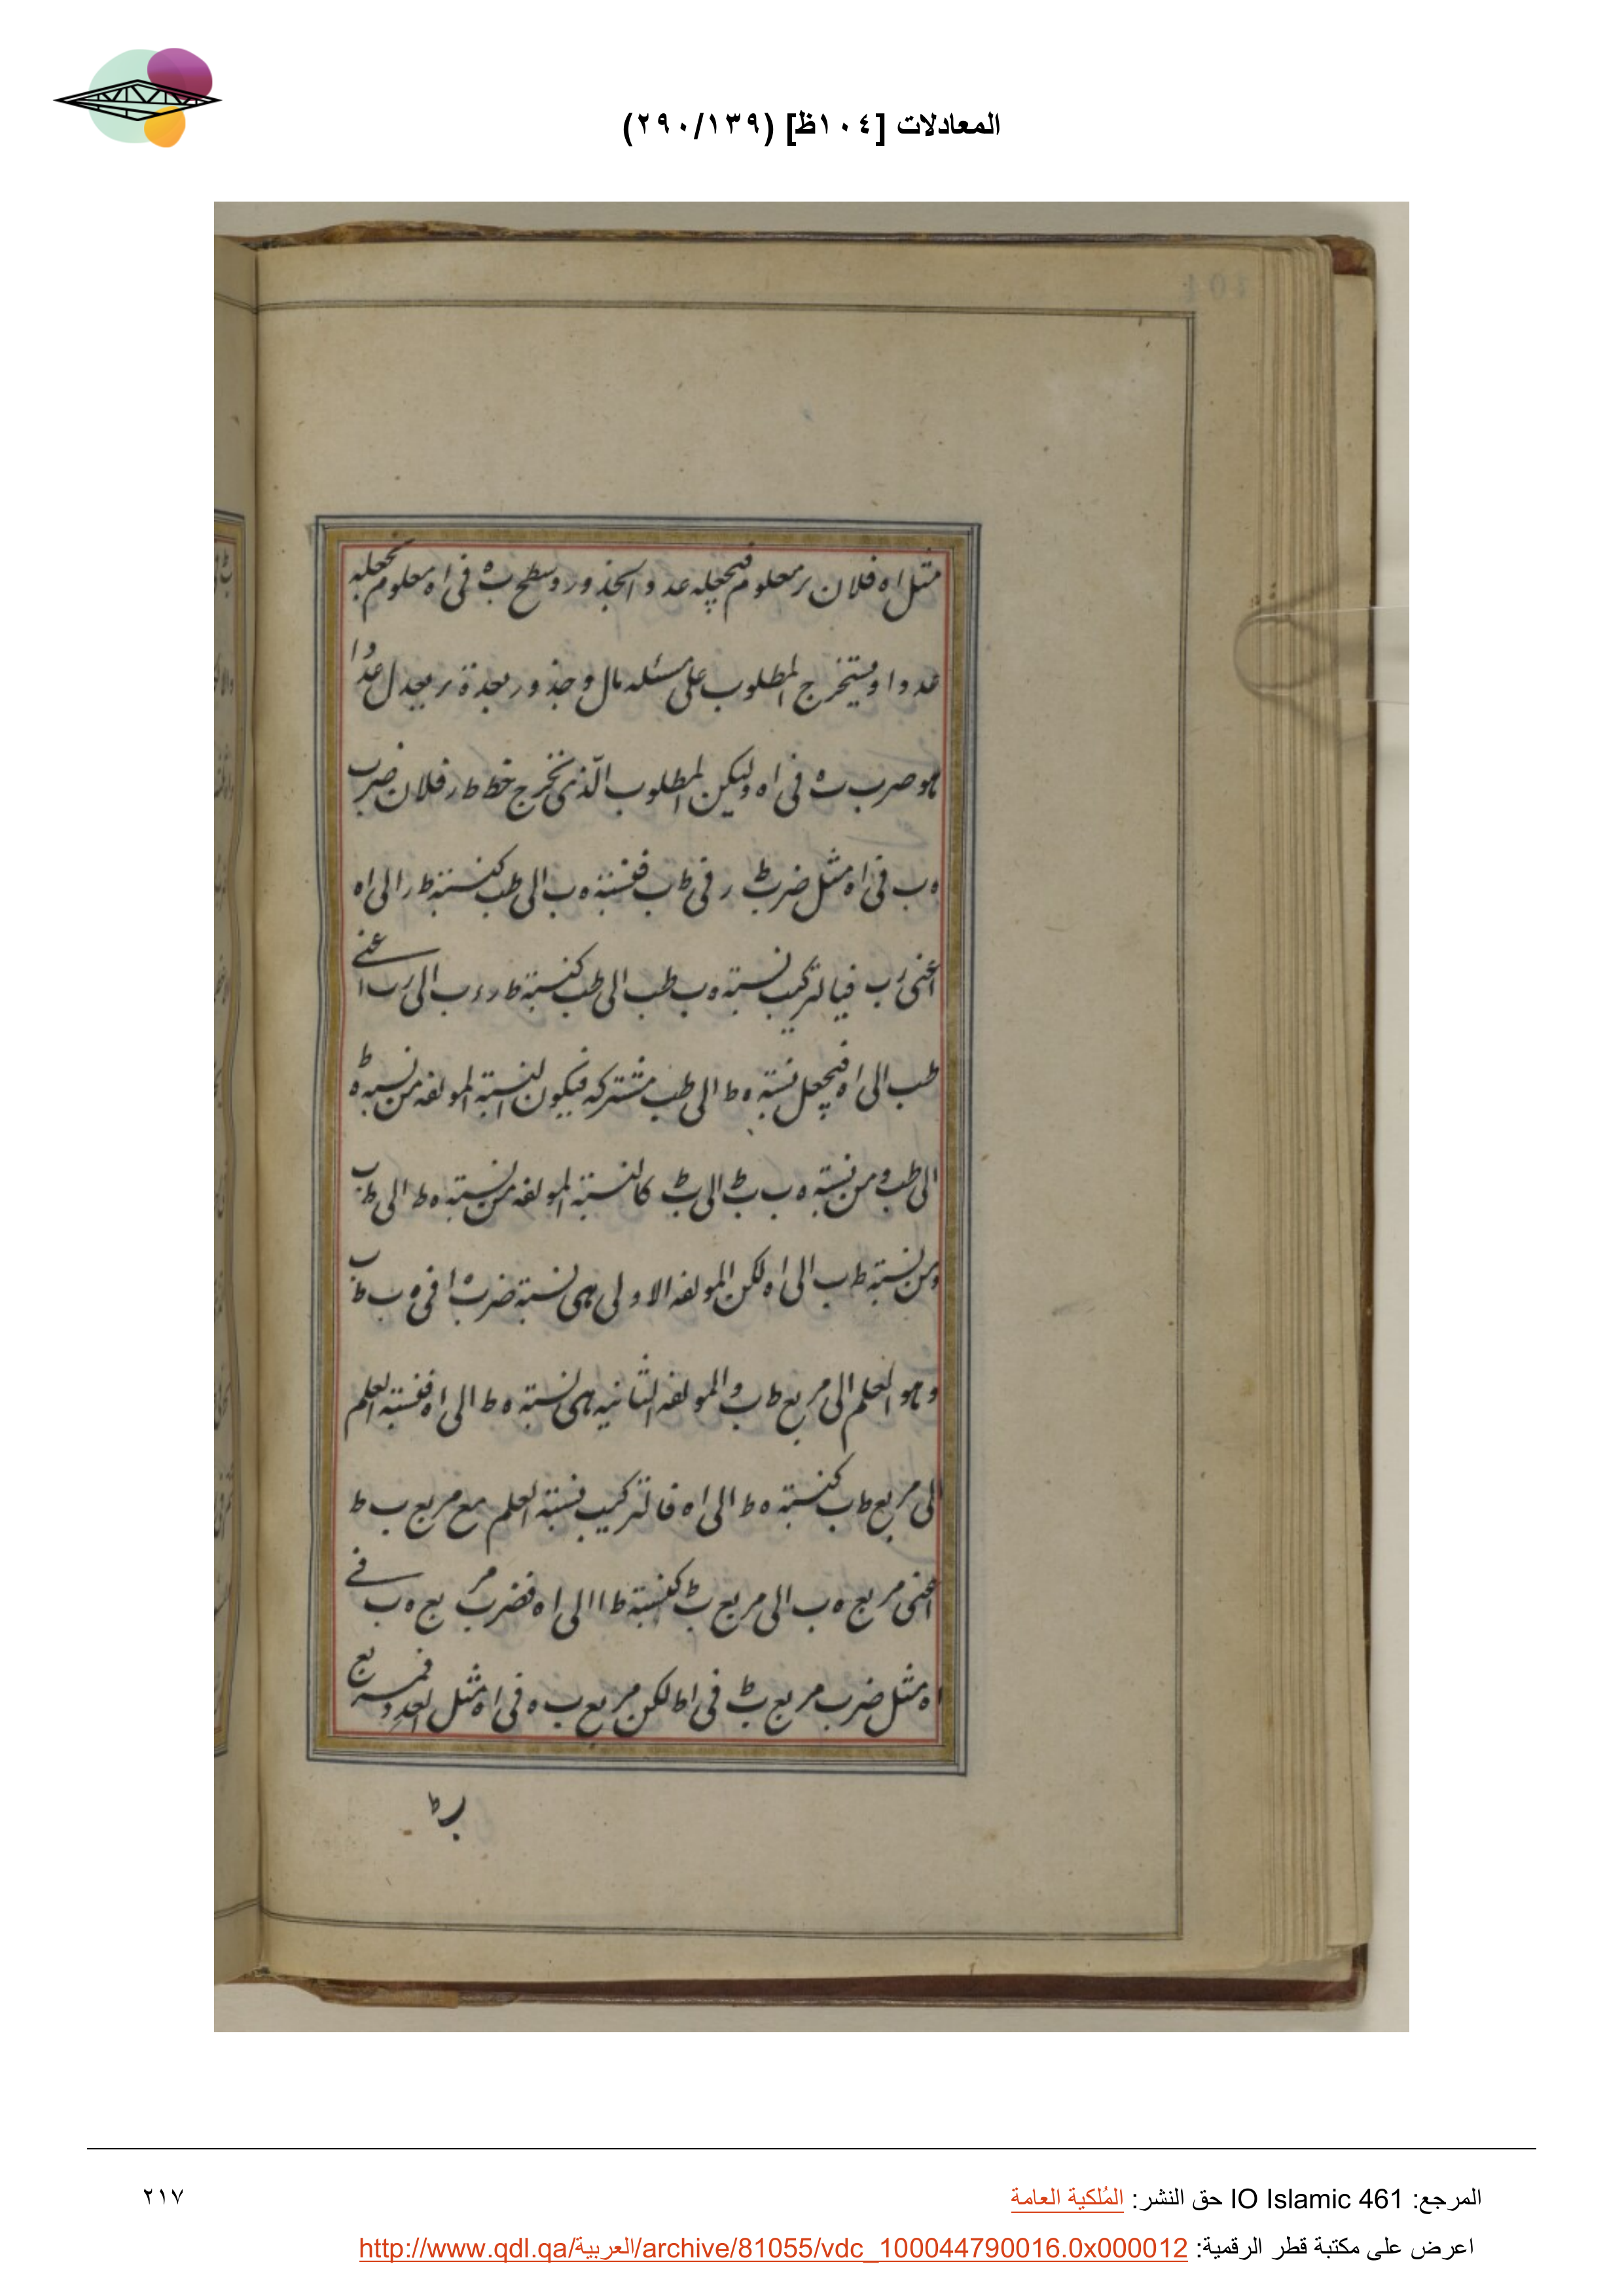 المعادلات [١٠٤ظ] (٢٩٠/١٣٩)
مثل اه فلان ر معلوم فيجعله عدد الجذور وسطح ب ه فى اه معلوم نجعله
عددا ويستخرج المطلوب على مسئله مال وجذور بعدة ر يعدل عددا
هو ضرب ب ه فى اه وليكن المطلوب الذى نخرج خط ط ر فلان ضرب
ه ب فى اه مثل ضرب ط ر فى ط ب فنسبة ه ب الى ط ب كنسبة ط ر الى اه
اعنى ر ب فبالتركيب نسبة ه ب ط ب الى ط ب كنسبة ط ر ر ب الى ر ب اعنى
ط ب الى اه فيجعل نسبة ه ط الى ط ب مشتركه فيكون النسبة المولفه من نسبة ه ط
الى ط ب ومن نسبة ه ب ب ط الى ب ط كالنسبة المولفه من نسبة ه ط الى ط ب
ومن نسبة ط ب الى اه لكن المولفه الاولى هى نسبة ضرب ه ا فى ه ب ط ب
وهو العلم الى مربع ط ب والمولفه الثانيه هى نسبة ه ط الى اه فنسبة العلم
الى مربع ط ب كنسبة ه ط الى اه فالتركيب نسبة العلم مع مربع ب ط
اعنى مربع ه ب الى مربع ب ط كنسبة ط ا الى اه فضرب مربع ه ب فى
اه مثل ضرب مربع ب ط فى اط لكن مربع ب ه فى اه مثل العدد فمربع
ب ط
المرجع: IO Islamic 461 حق النشر: المُلكية العامة
٢١٧
اعرض على مكتبة قطر الرقمية: http://www.qdl.qa/العربية/archive/81055/vdc_100044790016.0x000012